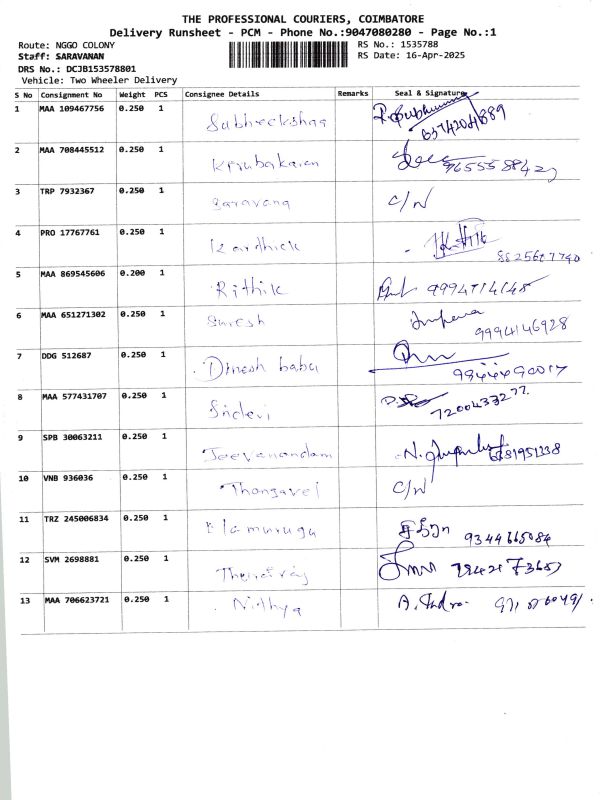 THE PROFESSIONAL COURIERS, COIMBATORE
Delivery Runsheet - PCM - Phone No.:9047080280 - Page No.:1
Route: NGGO COLONY RS No.: 1535788
Staff: SARAVANAN RS Date: 16-Apr-2025
DRS No.: DCJB153578801
Vehicle: Two Wheeler Delivery
S No Consignment No Weight PCS Consignee Details Remarks Seal & Signature
1 MAA 109467756 0.250 1 Subheekshaa
2 MAA 708445512 0.250 1 Kirubakaran
3 TRP 7932367 0.250 1 Saravana C/N
4 PRO 17767761 0.250 1 Kardhick
5 MAA 869545606 0.200 1 Rithik
6 MAA 651271302 0.250 1 Suresh 9994146928
7 DDG 512687 0.250 1 Dinesh babu
8 MAA 577431707 0.250 1 Sridevi
9 SPB 30063211 0.250 1 Jeevanandam
10 VNB 936036 0.250 1 Thangavel C/N
11 TRZ 245006834 0.250 1 Elamurugu 9344665084
12 SVM 2698881 0.250 1
13 MAA 706623721 0.250 1 Nithya